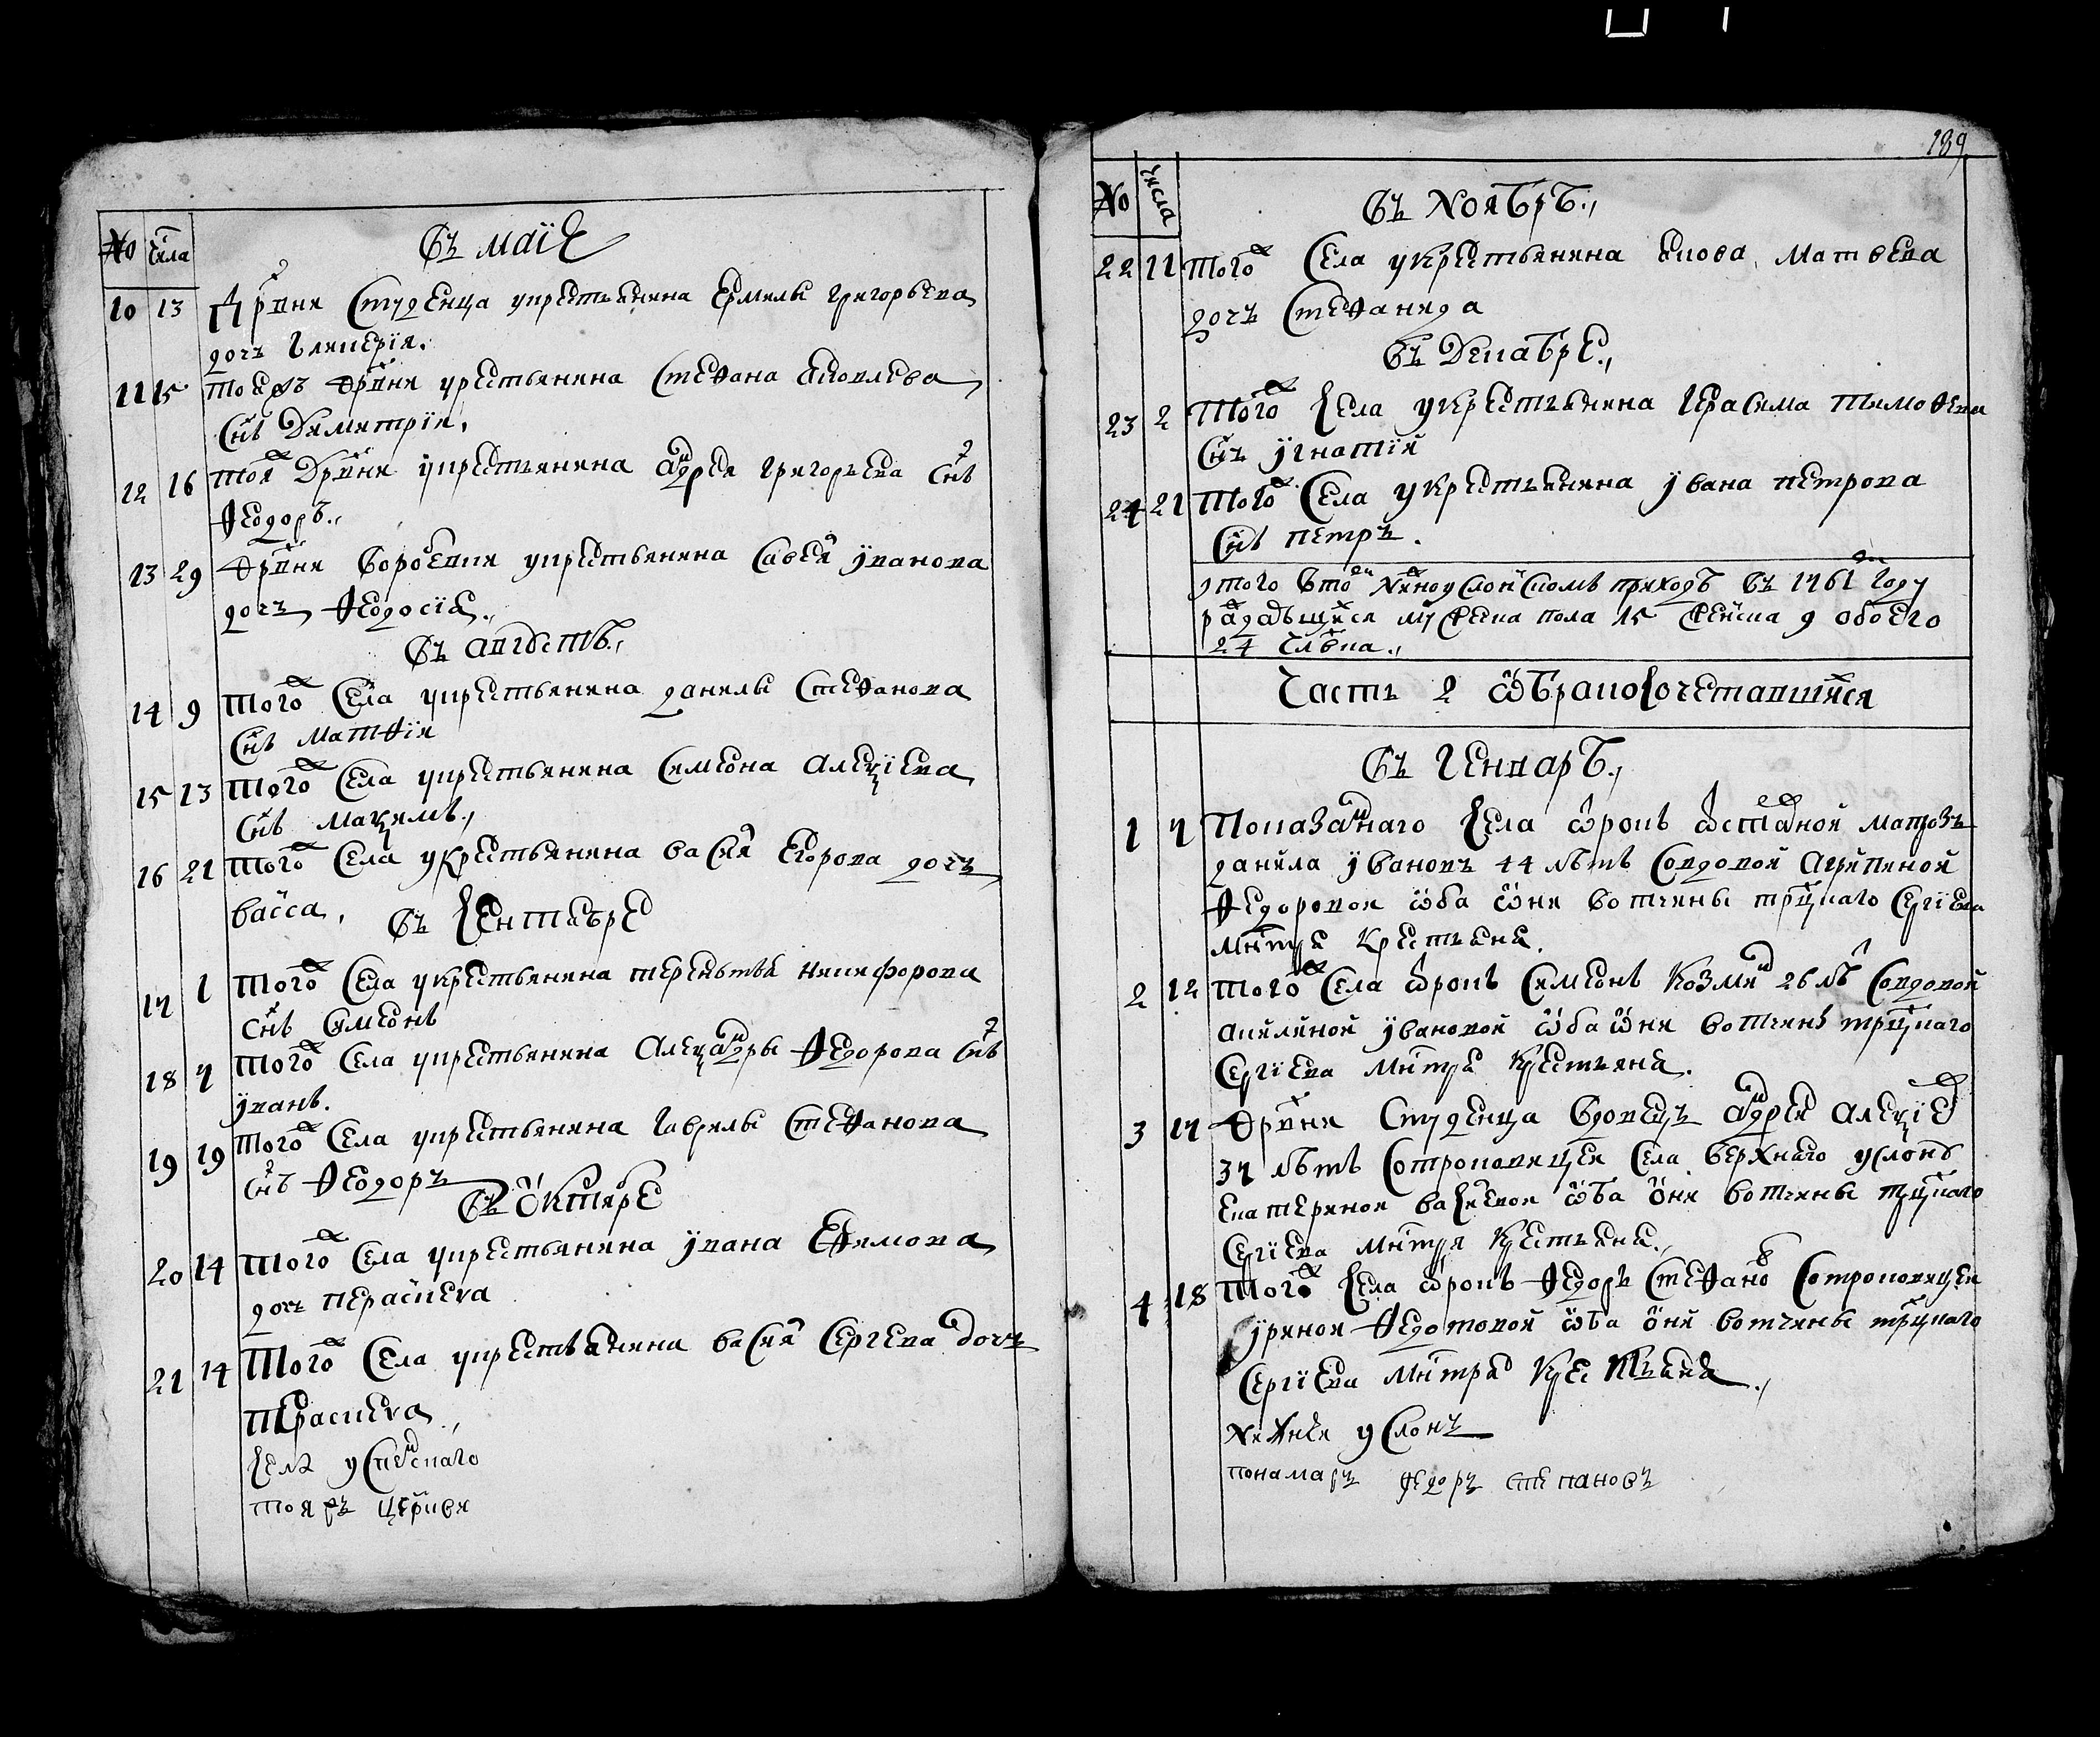 № числа
въ маїе
10 13 Дрвни Студенца укрестьянина Ермилы григорьева
дочь Гликерїя.
11 15 тоежъ дрвни укрестьянина Стефана Яковлева
снъ Димитрїи.
12 16 тояж Дрвни укрестьянина андрея григорьева снъ
Феодоръ.,
13 29 дрвни Воробевки укрестьянина Савея иванова
дочь Феодосїя.,
въ августѣ.,
14 9 тогож Села укрестьянина данилы Стефанова
снъ Матфїи
15 13 тогож Села укрестьянина Симеона алеѯїева
снъ маѯимъ.,
16 21 тогож Села укрестьянина василя Егорова дочь
васса.
въ Сентябре
17 1 тогож Села укрестьянина терентья никифорова
снъ Симеонъ
18 7 тогож Села укрестьянина Алеѯандры Федорова снъ
иванъ.
19 19 тогож Села укрестьянина гаврилы Стефанова
снъ Феодоръ
въ Октябре
20 14 тогож Села укрестьянина ивана Ефимова
дочь Параскева
21 14 Тогож Села укрестьянина василя Сергева дочь
Параскева.,
Села успенскаго
тояжъ церкви
189
№ числа
въ Ноябрѣ.,
22 11 тогож Села укрестьянина Иова Матвева
дочь Стефанида
въ Декабре.,
23 2 тогож Села укрестьянина герасима тимофева
снъ игнатїй
24 21 тогож Села укрестьянина ивана петрова
снъ петръ.
итого вто нижноуслонскомъ приходѣ въ 1761 году
раждавшихся мужеска пола 15 женска 9 обоего
24 члвка.,
Часть 2 ѿбракосочетавшихся
въ Генварѣ.,
1 7 Показаннаго Села ѿрокъ ѿставной матрозъ
данила ивановъ 44 лѣтъ Совдовой агрипиной
Федоровой ѡба ѡни вотчины трцкаго Сергїева
мнтря крестьяня.
2 12 тогож Села ѿрокъ Симеонъ Козмин 26 лѣ Совдовой
акилиной ивановой ѡба ѡни вотчины трцкаго
Сергїева мнтря крестьяня.
3 17 дрвни Студенца вдовецъ андрей алеѯїев
37 лѣтъ Сотроковицей Села верхняго услона
Екатериной василевой ѡба ѡни вотчины трцкаго
Сергїева мнтря крестьяня.,
4 18 тогож Села ѿрокъ Федоръ Стефанов Сотроковицей
ириной Федотовой ѡба ѡни вотчины трцкаго
Сергїева мнтря крестьяня.,
нижнея услонъ
понамаръ федоръ степановъ